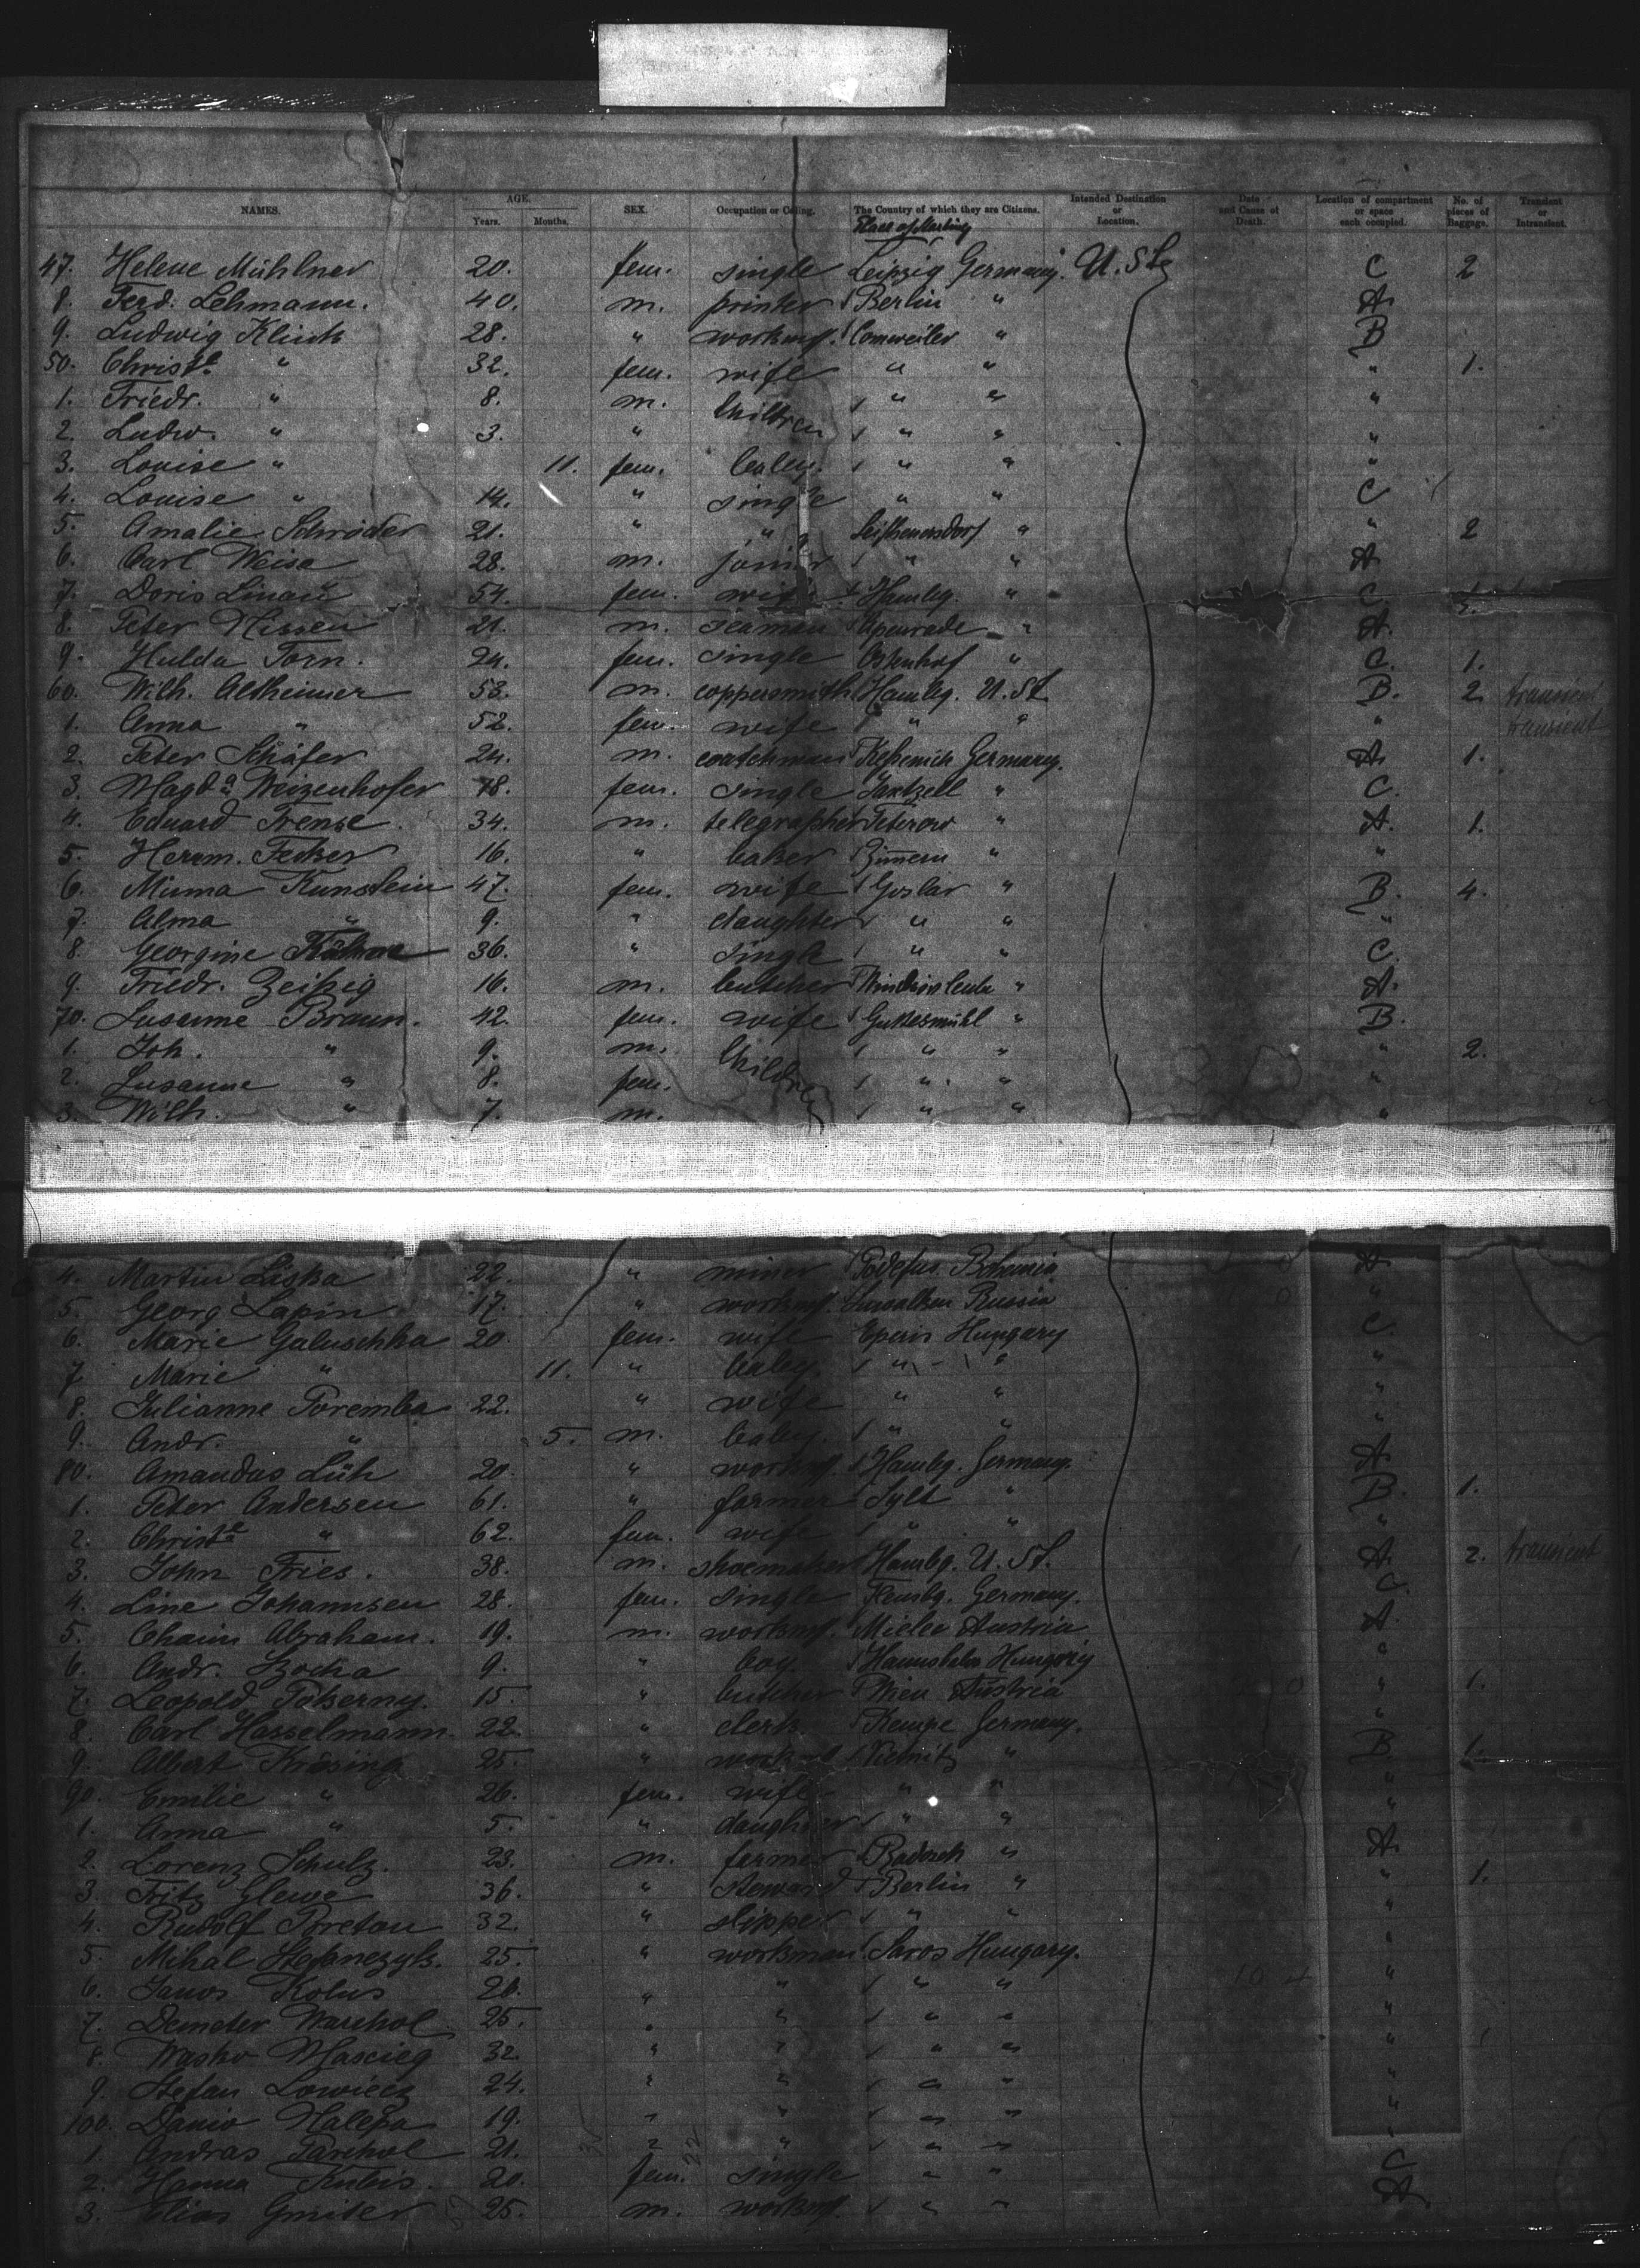 NAMES. AGE. Years. Months. SEX. Occupation or Calling. The Country of which they are Citizens. Intended Destination or Location. Date and Cause of Death. Location of compartment or space each occupied. No. of pieces of Baggage. Transient or Intransient.
Place of
47. Helene Mühlner 20. fem. single Leipzig Germany. U. St. C 2
8. Ferd. Lehmann. 40. m. printer Berlin " A.
9. Ludwig 28. " workm. " B
50. Christe " 32. fem. wife " " " 1.
1. Friedr. " 8. m. children " " "
2. Ludw. " 3. " " " "
3. Louise " 11. fem. baby. " " "
4. Louise " 14. " single " " C
5. Amalie Schröder 21. " " " " 2
6. Carl Weise 28. m. joiner " " A
7. Doris Linau 54. fem. wife Hambg. " C.
8. Peter Nissen 21. m. seaman Apenrade " A.
9. Hulda Torn. 24. fem. single Ostenhof " C. 1.
60. Wilh. Altheimer 53. m. coppersmith Hambg. U. St. B. 2 transient
1. Anna " 52. fem. wife " " " transient
2. Peter Schäfer 24. m. coatchman Germany. A. 1.
3. Magda Weizenhofer 18. fem. single " C.
4. Eduard Frense. 34. m. telegrapher Teterow " A. 1.
5. Herrm. 16. " baker Zimmern " "
6. Minna Kunstein 47. fem. wife Goslar " B. 4.
7. Alma " 9. " daughter " " "
8. Georgine 36. " single " " C.
9. Friedr. Zeitzig 16. m. butcher " A.
70. Susanne Braun. 42. fem. wife " B.
1. Joh. " 9. m. children " " " 2.
2. Susanna " 8. fem. " " "
3. Wilh. " 7. m. " " "
4. Martin Liska 22. " miner Bohemia A
5. Georg Lapin 17. " workm. Suwalken Russia "
6. Marie Galuschka 20. fem. wife Eperis Hungary C.
7. Marie " 11. " baby. " " "
8. Julianne Poremba 22. " wife " " "
9. Andr. " 5. m. baby. " " "
80. Amandus Lüh 20. " workm. Hambg. Germany. A.
1. Peter Andersen 61. " farmer Sylt " B. 1.
2. Christe " 62. fem. wife " " "
3. John Fries. 38. m. shoemaker Hambg. U. St. A. 2. transient
4. Line Johannsen 28. fem. single Flensbg. Germany. C.
5. Chaim Abraham. 19. m. workm. Mielec Austria A.
6. Andr. Szocha 9. " boy Hungary "
7. Leopold 15. " butcher Wien Austria " 1.
8. Carl Hasselmann. 22. " clerk Kempe Germany. "
9. Albert Krösing 25. " workm. " B. 1.
90. Emilie " 26. fem. wife " " "
1. Anna " 5. " daughter " " "
2. Lorenz Schulz. 23. m. farmer " A.
3. Fritz Glewe 36. " steward Berlin " " 1.
4. Rudolf Pretou 32. " slipper " " "
5. Mihal 25. " workman Saros Hungary. "
6. Janos Kolus 26. " " " " "
7. Demeter Warchol 25. " " " " "
8. Wasko 32. " " " " "
9. Stefan Lowiecz 24. " " " " "
100. Danio Halepa 19. " " " " "
1. Andras Parchol 21. " " " " "
2. Hanna Kubis. 20. fem. single " " C
3. Elias Gmiter 25. m. workm. " " A.